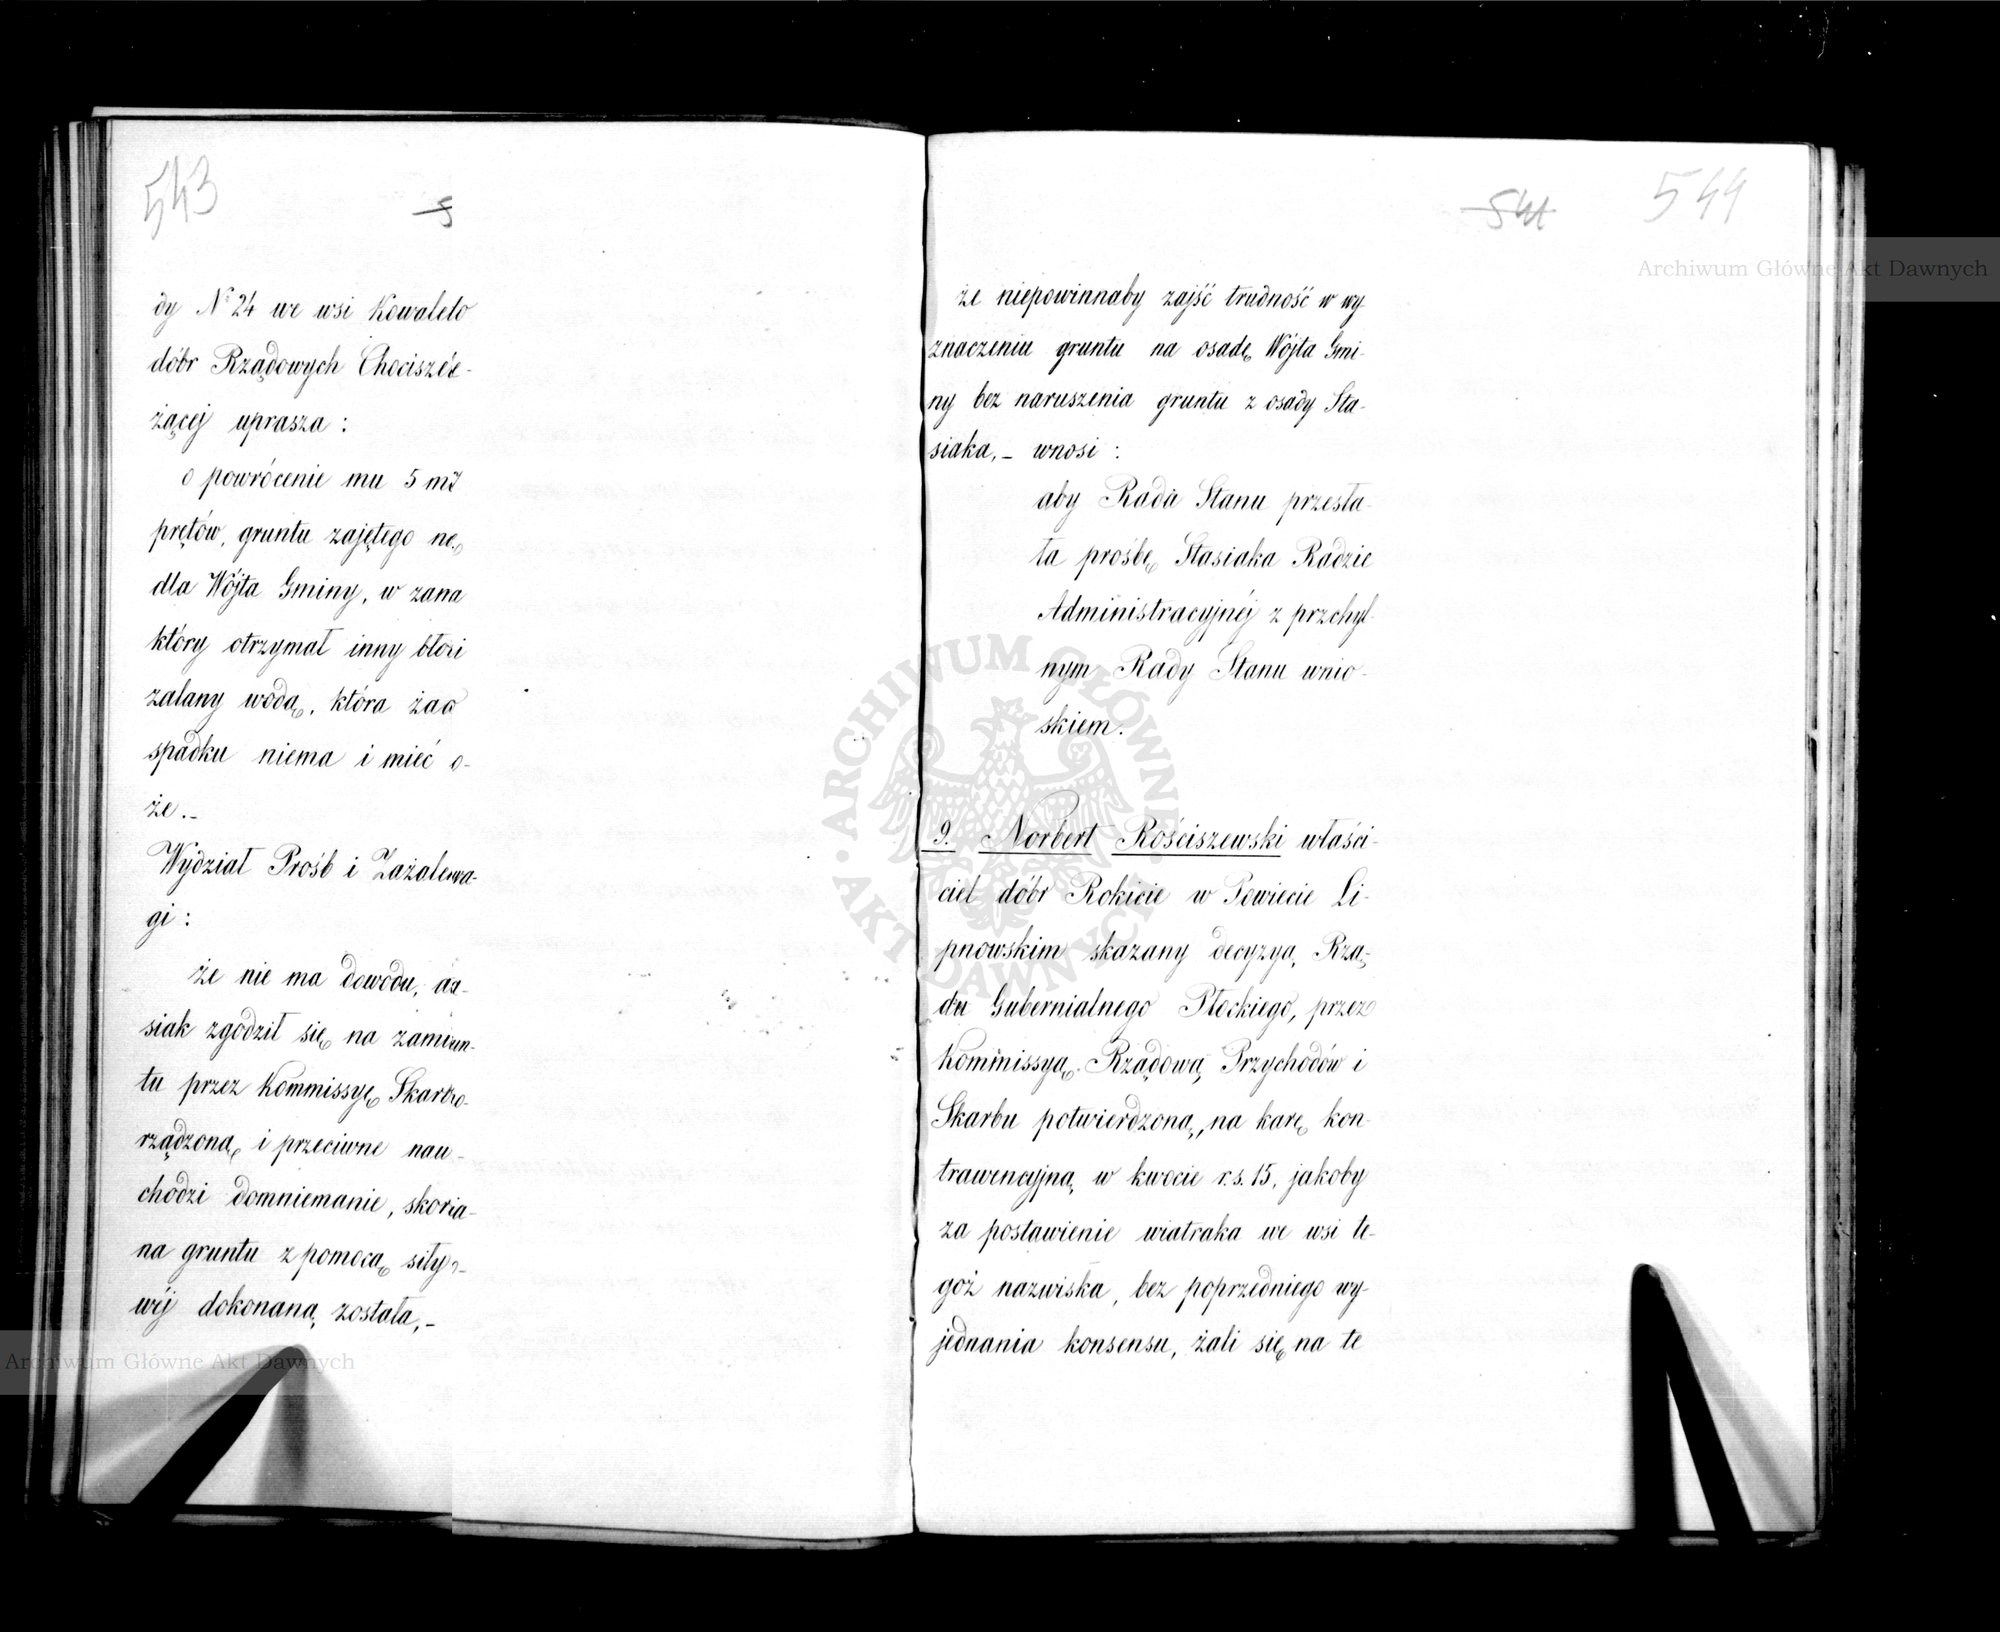 543
dy № 24 we wsi Kowale
dóbr Rządowych Chociszé
żącej uprasza :
o powrócenie mu 5 m
prętów, gruntu zajętego
dla Wójta Gminy, w
który otrzymał inny
zalany wodą, która
spadku niema i mieć
że._
Wydział Prośb i Zażale
gi :
że nie ma dowodu,
siak zgodził się na
tu przez Kommissyę Skar
rządzoną, i przeciwne
chodzi domniemanie,
na gruntu z pomocą siły
wéj dokonaną została,_
544
544
że niepowinnaby zajść trudność w wy
znaczeniu gruntu na osadę Wójta Gmi-
ny bez naruszenia gruntu z osady Sta-
siaka,_ wnosi :
aby Rada Stanu przesła-
ła prośbę Stasiaka Radzie
Administracyjnéj z przchyl-
nym Rady Stanu wnio-
skiem.
9. Norbert Rościszewski właści-
ciel dóbr Rokicie w Powiecie Li-
pnowskim skazany decyzyą Rzą-
du Gubernialnego Płockiego, przez
Kommissyą Rządową Przychodów i
Skarbu potwierdzoną, na karę kon-
trawencyjną w kwocie r.s. 15, jakoby
za postawienie wiatraka we wsi te-
goż nazwiska, bez poprzedniego wy-
jednania konsensu, żali się na te
Archiwum Główne Akt Dawnych
ARCHIWUM GŁÓWNE AKT DAWNYCH
Archiwum Główne Akt Dawnych